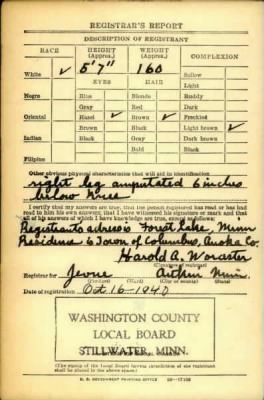 REGISTRAR'S REPORT
DESCRIPTION OF REGISTRANT
RACE HEIGHT (Approx.) WEIGHT (Approx.) COMPLEXION
White ✓ 5' 7" 160 Sallow
EYES HAIR Light
Negro Blue Blonde Ruddy
Gray Red Dark
Oriental Hazel ✓ Brown ✓ Freckled
Brown Black Light brown ✓
Indian Black Gray Dark brown
Bald Black
Filipino
Other obvious physical characteristics that will aid in identification
right leg amputated 6 inches
below knee
I certify that my answers are true; that the person registered has read or has had
read to him his own answers; that I have witnessed his signature or mark and that
all of his answers of which I have knowledge are true, except as follows:
Registrants adress is Forest Lake, Minn
Residence is Town of Columbus, Anoka Co.
Harold A. Worster
(Signature of registrar)
Registrar for Minn.
(Precinct) (Ward) (City or county) (State)
Date of registration Oct 16-1940
WASHINGTON COUNTY
LOCAL BOARD
STILLWATER, MINN.
(The stamp of the Local Board having jurisdiction of the registrant
shall be placed in the above space.)
U. S. GOVERNMENT PRINTING OFFICE 16-17105